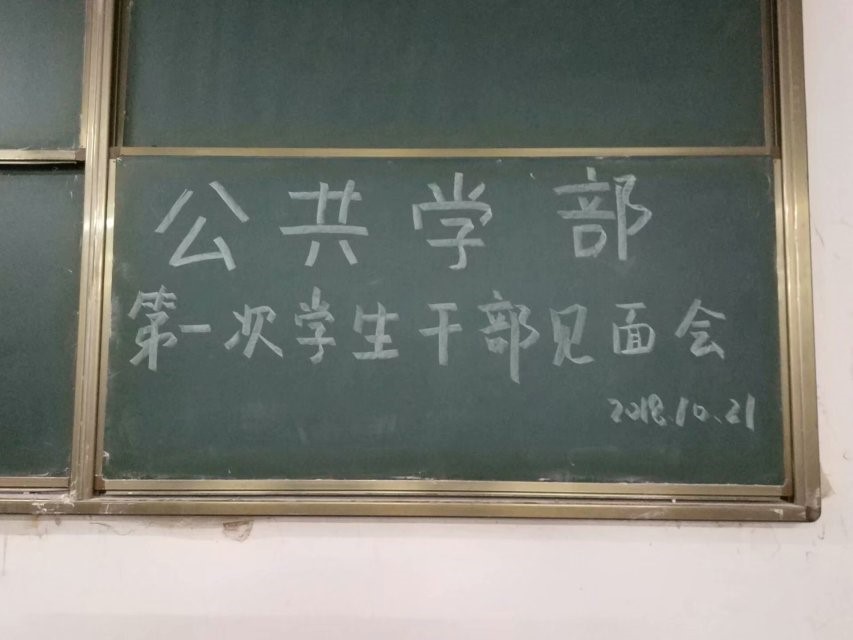 公共学部
第一次学生干部见面会
2018.10.21